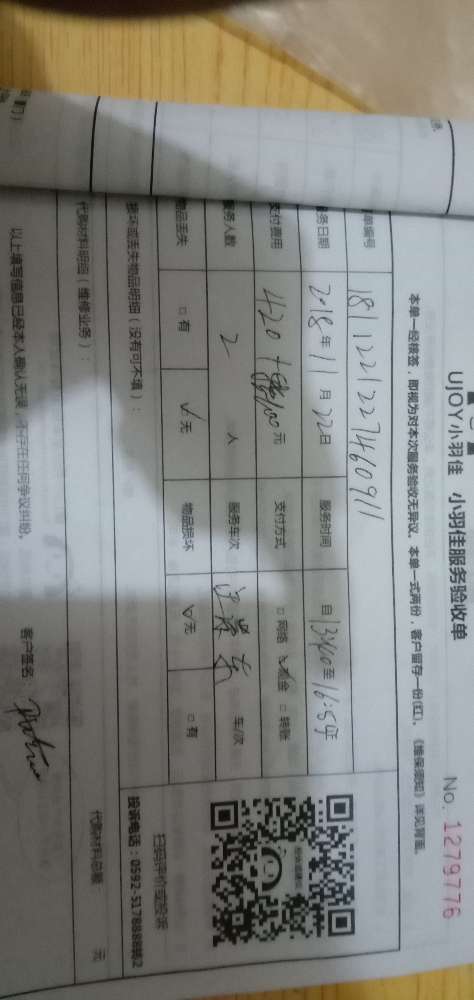 UJOY小羽佳 小羽佳服务验收单
No. 1279776
本单一经核签，即视为对本次服务验收无异议。本单一式两份，客户留存一份(红)，《维保须知》详见背面。
单编号 181122122746091 1
服务日期 2018年11月22日 服务时间 自13:40至16:54止
支付费用 420 元 支付方式 □网络 ☑现金 □转账
服务人数 2 人 服务车次 车/次
物品丢失 □有 ☑无 物品损坏 ☑无 □有
扫码评价或投诉
投诉电话：0592-5178888转2
损坏或丢失物品明细（没有可不填）：
代购材料明细（维修业务）：
代购材料总额 元
以上填写信息已经本人确认无误，不存在任何争议纠纷。
客户签名：